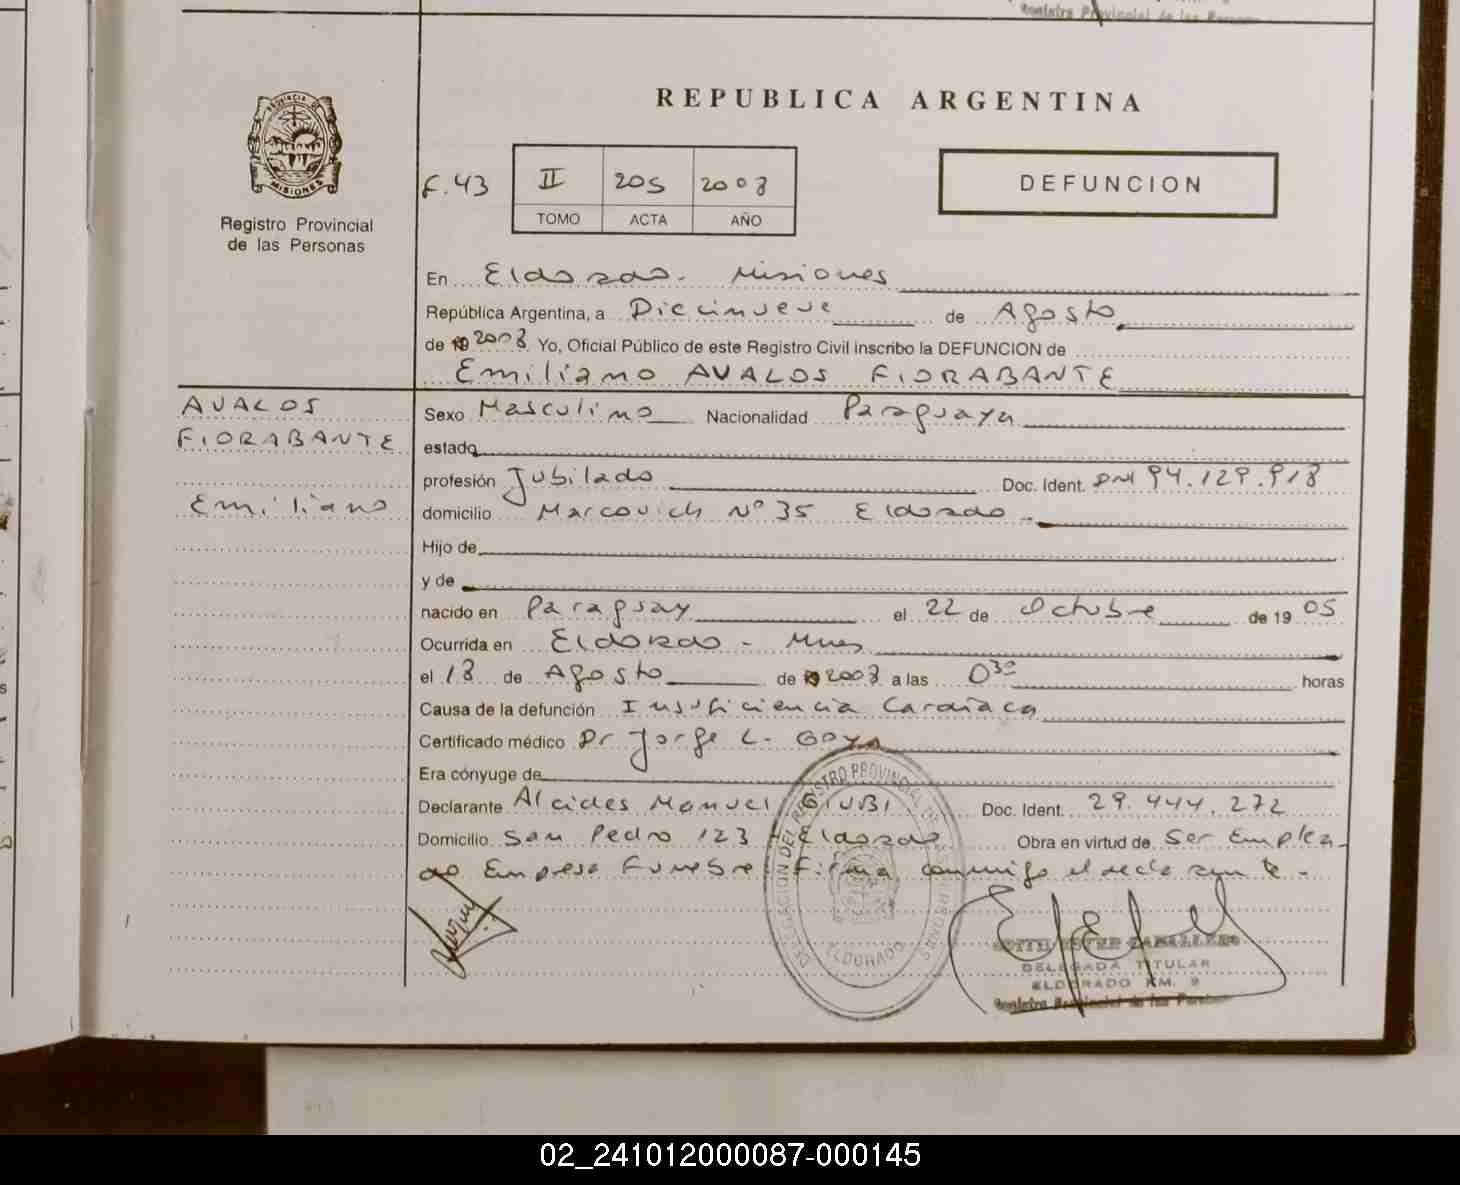 Registro Provincial de las Personas
PROVINCIA DE
MISIONES
Registro Provincial
de las Personas
REPUBLICA ARGENTINA
F.43 II 205 2008
TOMO ACTA AÑO
DEFUNCION
En Eldorado - Misiones
República Argentina, a Diecinueve de Agosto
de 19 2008 Yo, Oficial Público de este Registro Civil inscribo la DEFUNCION de
Emiliano AVALOS FIORABANTE
AVALOS
FIORABANTE
Emiliano
Sexo Masculino Nacionalidad Paraguaya
estado
profesión Jubilado Doc. Ident. DNI 94.129.918
domicilio Marcovich Nº 35 Eldorado -
Hijo de
y de
nacido en Paraguay el 22 de Octubre de 19 05
Ocurrida en Eldorado - Mnes
el 18 de Agosto de 19 2008 a las 0 30 horas
Causa de la defunción Insuficiencia Cardiaca
Certificado médico Dr Jorge L. Goya
Era cónyuge de
Declarante Alcides Manuel GIUBI Doc. Ident. 29.444.272
Domicilio San Pedro 123 - Eldorado Obra en virtud de Ser Emplea-
do Empresa Funebre. Firma conmigo el declarante -
DELEGACION DEL REGISTRO PROVINCIAL DE LAS PERSONAS
ELDORADO
EDITH ESTER CABALLERO
DELEGADA TITULAR
ELDORADO KM. 9
Registro Provincial de las Personas
02_241012000087-000145